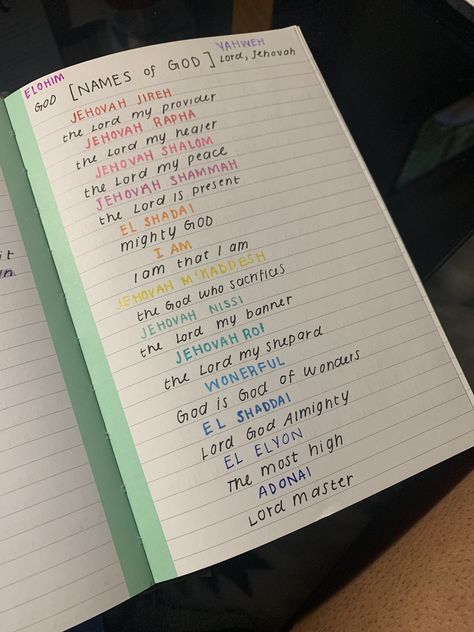 ELOHIM
GOD [NAMES of GOD]
YAHWEH
Lord, Jehovah
JEHOVAH JIREH
the Lord my provider
JEHOVAH RAPHA
the Lord my healer
JEHOVAH SHALOM
the Lord my peace
JEHOVAH SHAMMAH
the Lord is present
EL SHADAI
mighty GOD
I AM
I am that I am
JEHOVAH M'KADDESH
the God who sacrifices
JEHOVAH NISSI
the Lord my banner
JEHOVAH ROI
the Lord my shepard
WONERFUL
God is God of wonders
EL SHADDAI
Lord God Almighty
EL ELYON
The most high
ADONAI
Lord master